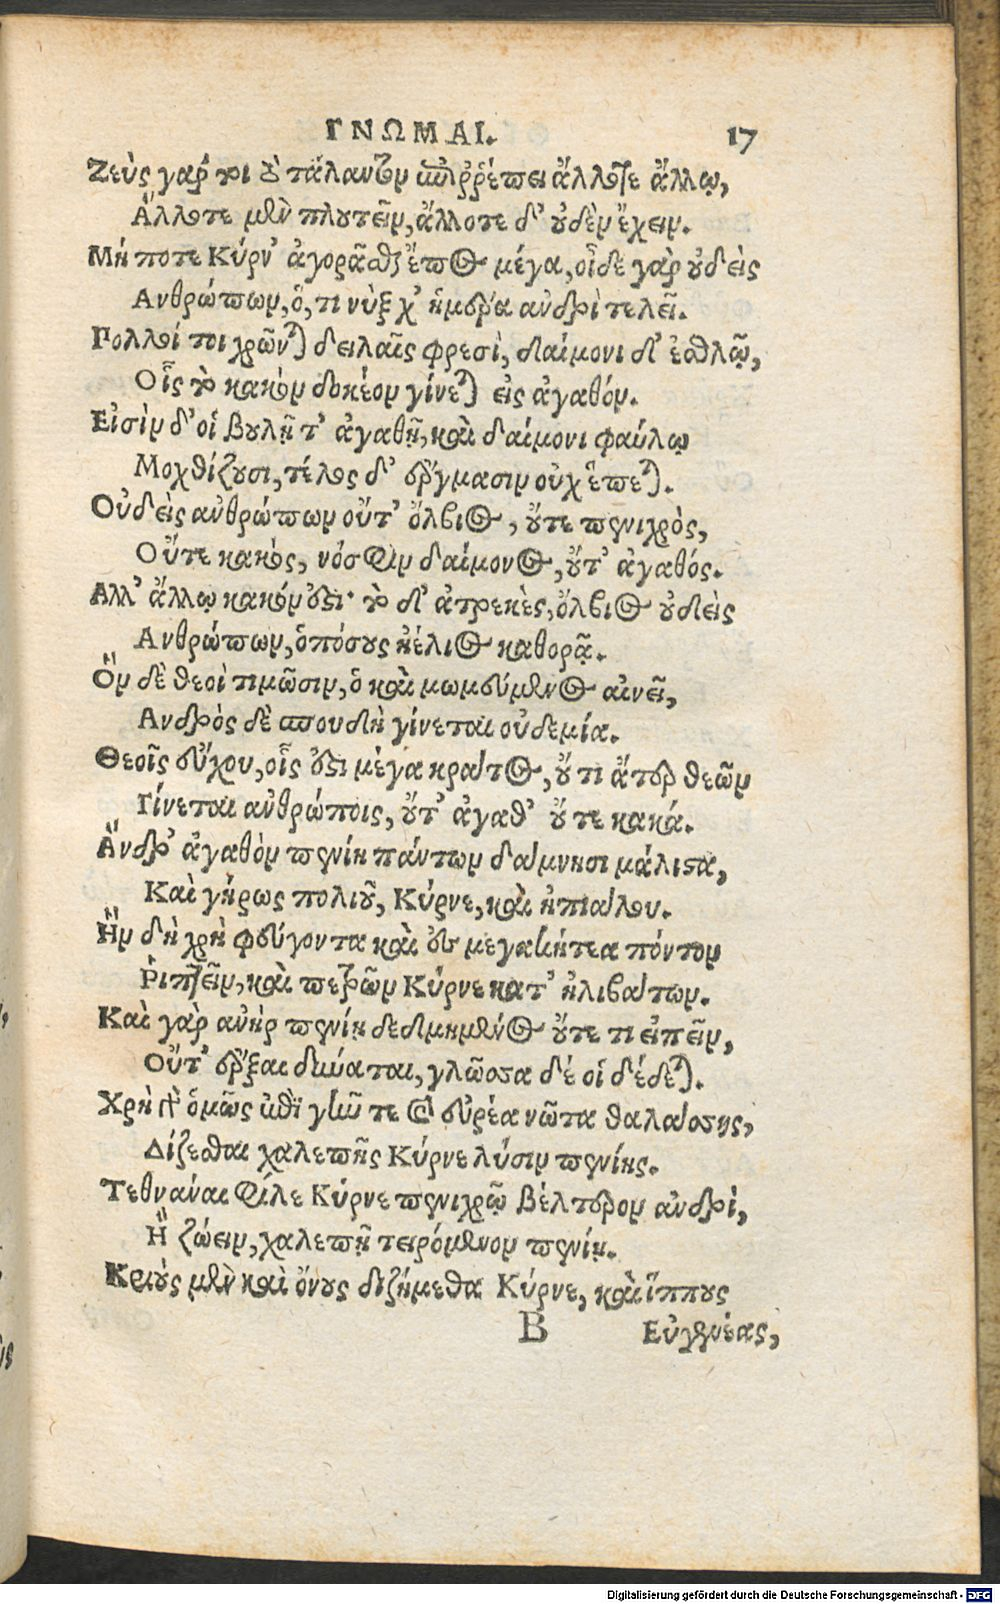 ΓΝΩΜΑΙ. 17
Ζεὺς γαρ τοι τὸ τάλαντον ἐπιῤῥέπει ἄλλοτε ἄλλῳ,
Ἄλλοτε μὲν πλουτεῖν, ἄλλοτε δ' οὐδὲν ἔχειν.
Μή ποτε Κύρν' ἀγορᾶσθαι ἔπος μέγα, οἶδε γὰρ οὐδεὶς
Ανθρώπων, ὅ, τι νὺξ χ' ἡμέρα ανδρὶ τελεῖ.
Πολλοί τοι χρῶνται δειλαῖς φρεσὶ, δαίμονι δ' ἐσθλῷ,
Οἷς τὸ κακὸν δοκέον γίνεται εἰς ἀγαθόν.
Εἰσὶν δ' οἱ βουλῇ τ' ἀγαθῇ, καὶ δαίμονι φαύλῳ
Μοχθίζουσι, τέλος δ' ἔργμασιν οὐχ ἕπεται.
Οὐδεὶς ανθρώπων οὔτ' ὄλβιος, οὔτε πενιχρὸς,
Οὔτε κακὸς, νόσφιν δαίμονος, οὔτ' ἀγαθός.
Αλλ' ἄλλῳ κακόν ἐστι· τὸ δ' ἀτρεκὲς, ὄλβιος οὐδεὶς
Ανθρώπων, ὁπόσους ἠέλιος καθορᾷ.
Ὃν δὲ θεοὶ τιμῶσιν, ὁ καὶ μωμεύμενος αἰνεῖ,
Ανδρὸς δὲ σπουδὴ γίνεται οὐδεμία.
Θεοῖς εὔχου, οἷς ἐστι μέγα κράτος, οὔ τι ἄτερ θεῶν
Γίνεται ανθρώποις, οὔτ' ἀγαθ' οὔτε κακά.
Ἄνδρ' ἀγαθὸν πενίη πάντων δάμνησι μάλιστα,
Καὶ γήρως πολιοῦ, Κύρνε, καὶ ἠπιάλου.
Ἣν δὴ χρὴ φεύγοντα καὶ ἐς μεγακήτεα πόντον
Ῥιπτεῖν, καὶ πετρῶν Κύρνε κατ' ἠλιβάτων.
Καὶ γὰρ ανὴρ πενίῃ δεδμημένος οὔτε τι εἰπεῖν,
Οὔτ' ἔρξαι δύναται, γλῶσσα δέ οἱ δέδεται.
Χρὴ γὰρ ὁμῶς ἐπὶ γῆν τε καὶ εὐρέα νῶτα θαλάσσης,
Δίζεσθαι χαλεπῆς Κύρνε λύσιν πενίης.
Τεθνάναι φίλε Κύρνε πενιχρῷ βέλτερον ἀνδρὶ,
Ἢ ζώειν, χαλεπῇ τειρόμενον πενίῃ.
Κριοὺς μὲν καὶ ὄνους διζήμεθα Κύρνε, καὶ ἵππους
B Εὐγενέας,
Digitalisierung gefördert durch die Deutsche Forschungsgemeinschaft - DFG